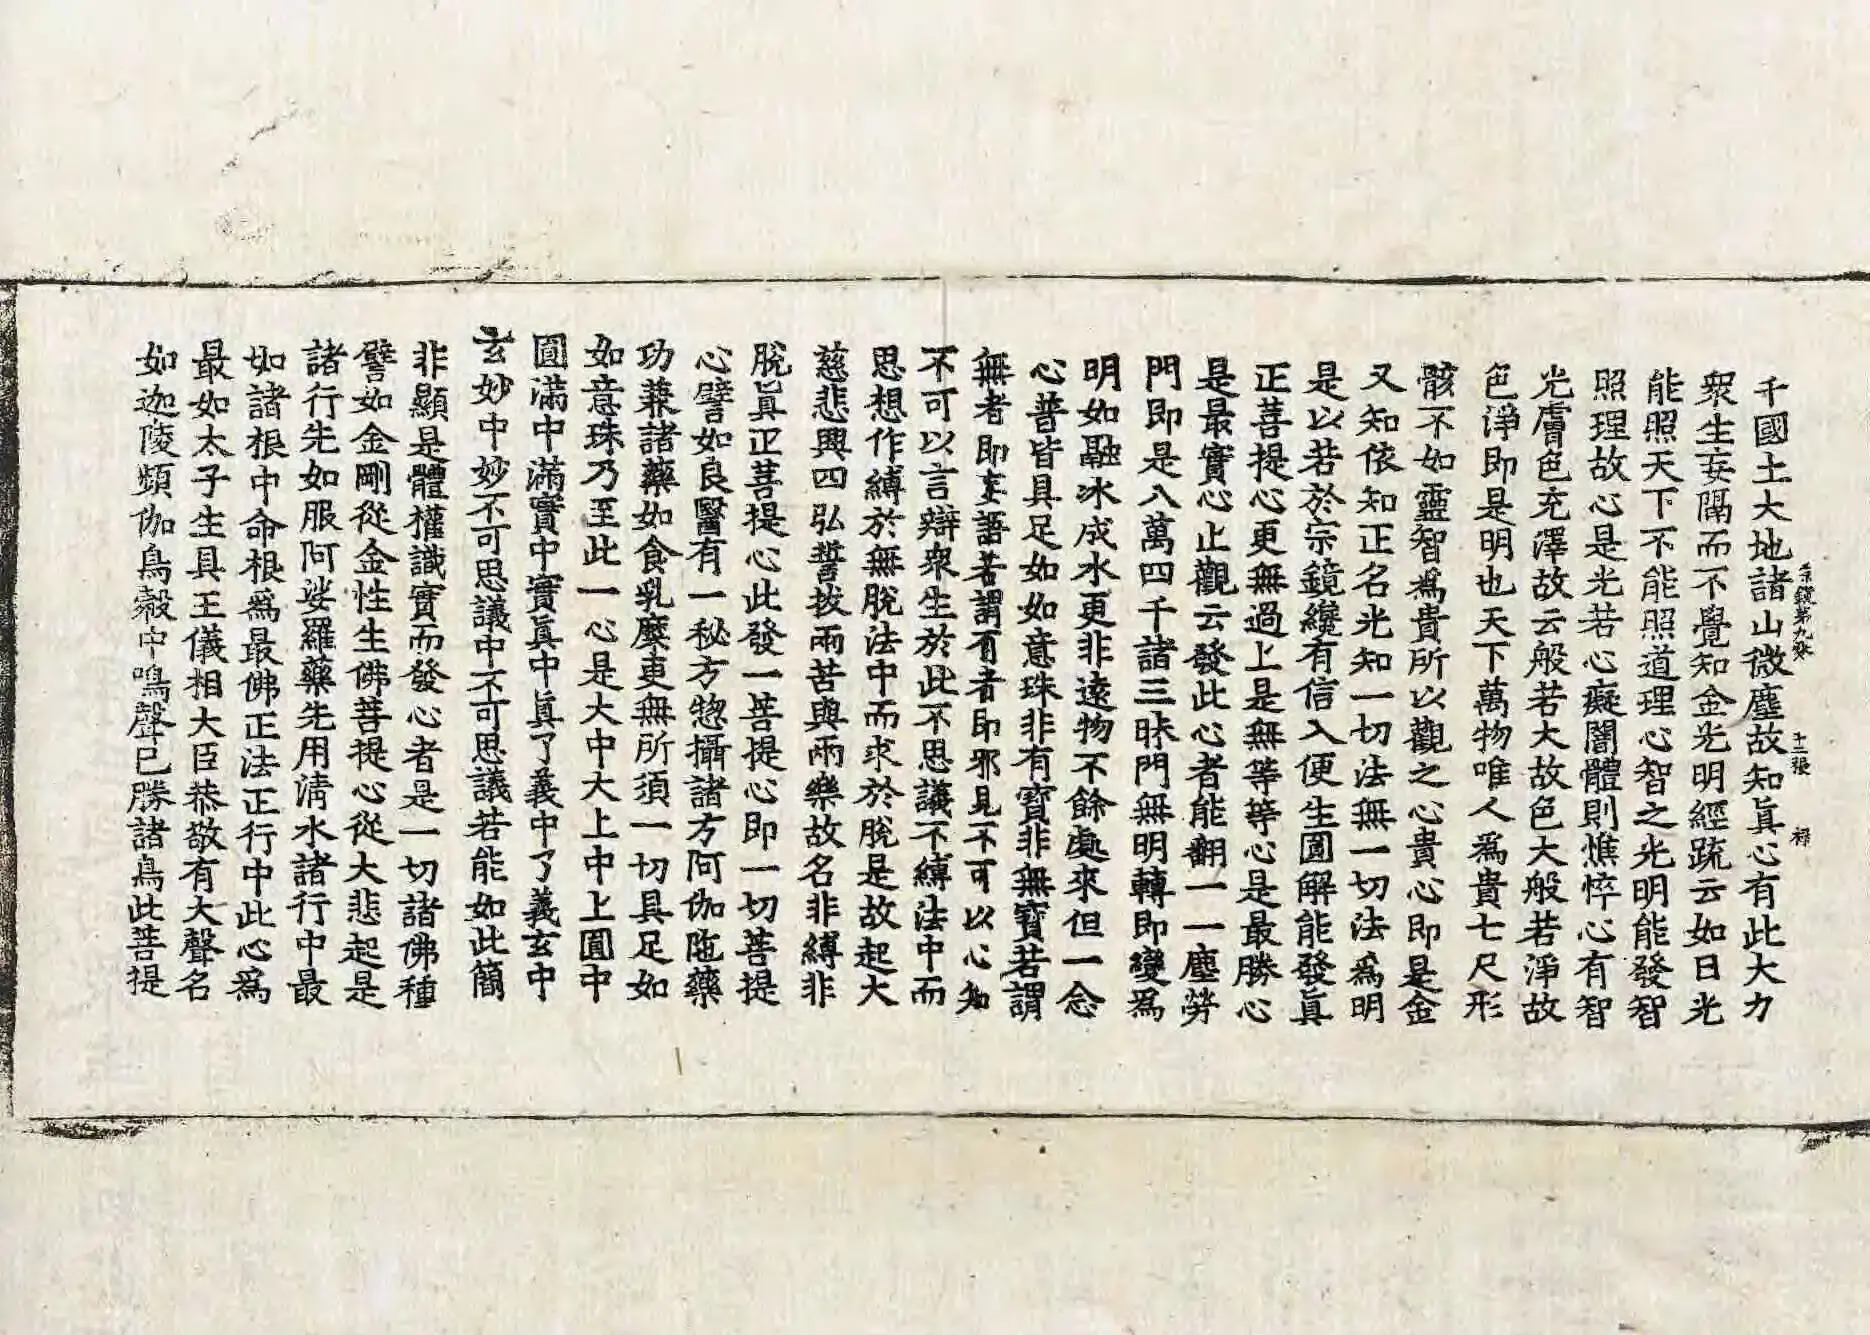 千國土大地諸山微塵故知眞心有此大力
宗鏡第九卷 十二張 祿
衆生妄隔而不覺知金光明經疏云如日光
能照天下不能照道理心智之光明能發智
照理故心是光若心癡闇體則憔悴心有智
光膚色充澤故云般若大故色大般若淨故
色淨即是明也天下萬物唯人爲貴七尺形
骸不如靈智爲貴所以觀之心貴心即是金
又知依知正名光知一切法無一切法爲明
是以若於宗鏡纔有信入便生圓解能發眞
正菩提心更無過上是無等等心是最勝心
是最實心止觀云發此心者能翻一一塵勞
門即是八萬四千諸三昧門無明轉即變爲
明如融冰成水更非遠物不餘處來但一念
心普皆具足如如意珠非有寶非無寶若謂
無者即妄語若謂有者即邪見不可以心知
不可以言辯衆生於此不思議不縛法中而
思想作縛於無脫法中而求於脫是故起大
慈悲興四弘誓拔兩苦與兩樂故名非縛非
脫眞正菩提心此發一菩提心即一切菩提
心譬如良醫有一秘方惣攝諸方阿伽陁藥
功兼諸藥如食乳糜更無所須一切具足如
如意珠乃至此一心是大中大上中上圓中
圓滿中滿實中實眞中眞了義中了義玄中
玄妙中妙不可思議中不可思議若能如此簡
非顯是體權識實而發心者是一切諸佛種
譬如金剛從金性生佛菩提心從大悲起是
諸行先如服阿娑羅藥先用淸水諸行中最
如諸根中命根爲最佛正法正行中此心爲
最如太子生具王儀相大臣恭敬有大聲名
如迦陵頻伽鳥㲉中鳴聲已勝諸鳥此菩提